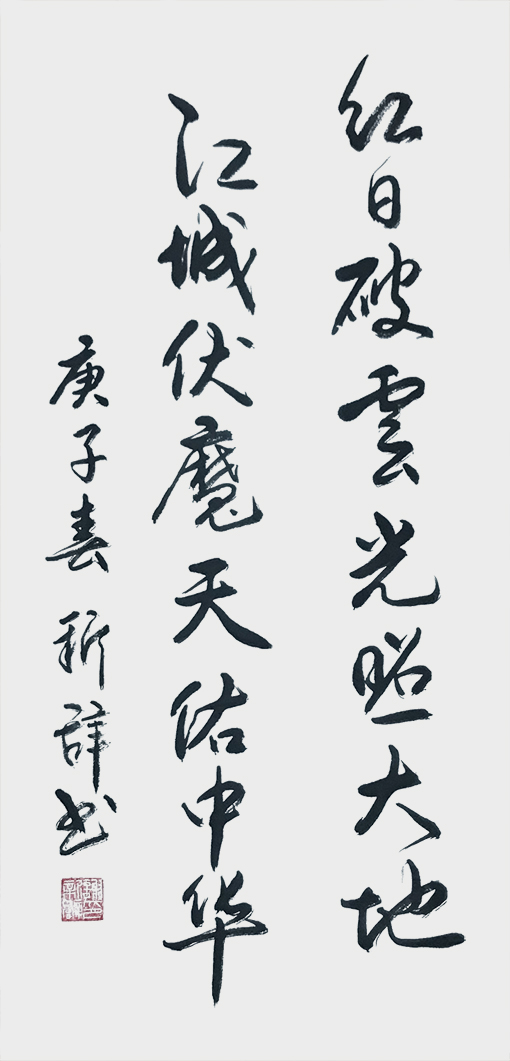 红日破雲光照大地
江城伏魔天佑中华
庚子春 新辞书